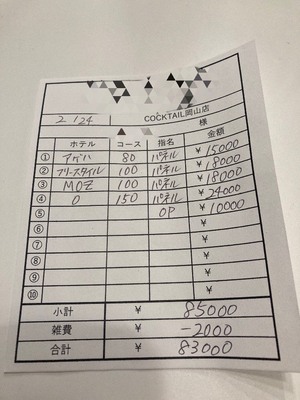 2/24
COCKTAIL岡山店
様
ホテル コース 指名 金額
① アゲハ 80 パネル ¥15000
② フリースタイル 100 パネル ¥18000
③ MOZ 100 パネル ¥18000
④ O 150 パネル ¥24000
⑤ OP ¥10000
⑥ ¥
⑦ ¥
⑧ ¥
⑨ ¥
⑩ ¥
小計 ¥ 85000
雑費 ¥ -2000
合計 ¥ 83000